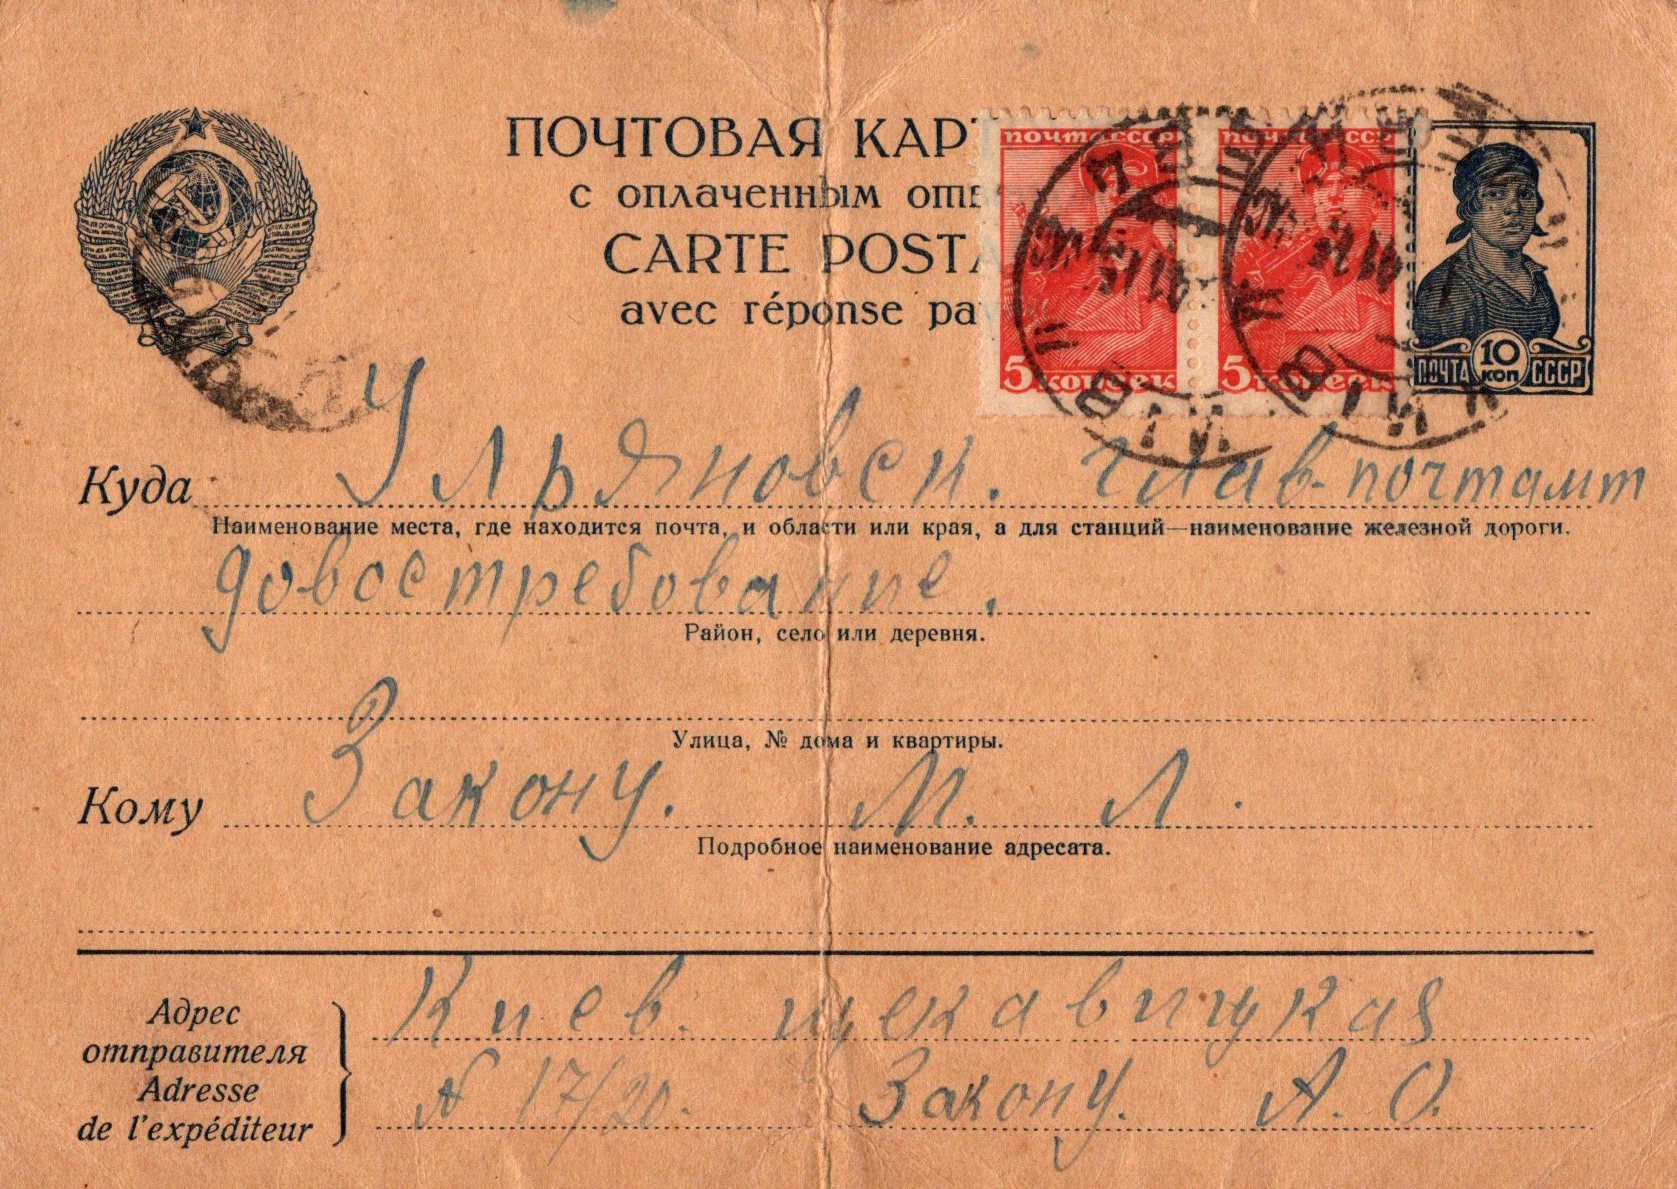 ПОЧТОВАЯ КАР
с оплаченным отв
CARTE POSTA
avec réponse pa
ПОЧТА СССР
ПОЧТА СССР
5 КОПЕЕК
5 КОПЕЕК
10 КОП
ПОЧТА СССР
Куда Ульяновск. Глав-почтамт
Наименование места, где находится почта, и области или края, а для станций—наименование железной дороги.
довостребование.
Район, село или деревня.
Улица, № дома и квартиры.
Кому Закону. М. Л.
Подробное наименование адресата.
Адрес отправителя
Adresse de l'expéditeur
Киев. щекавицкая
№ 17/20. Закону. А. О.